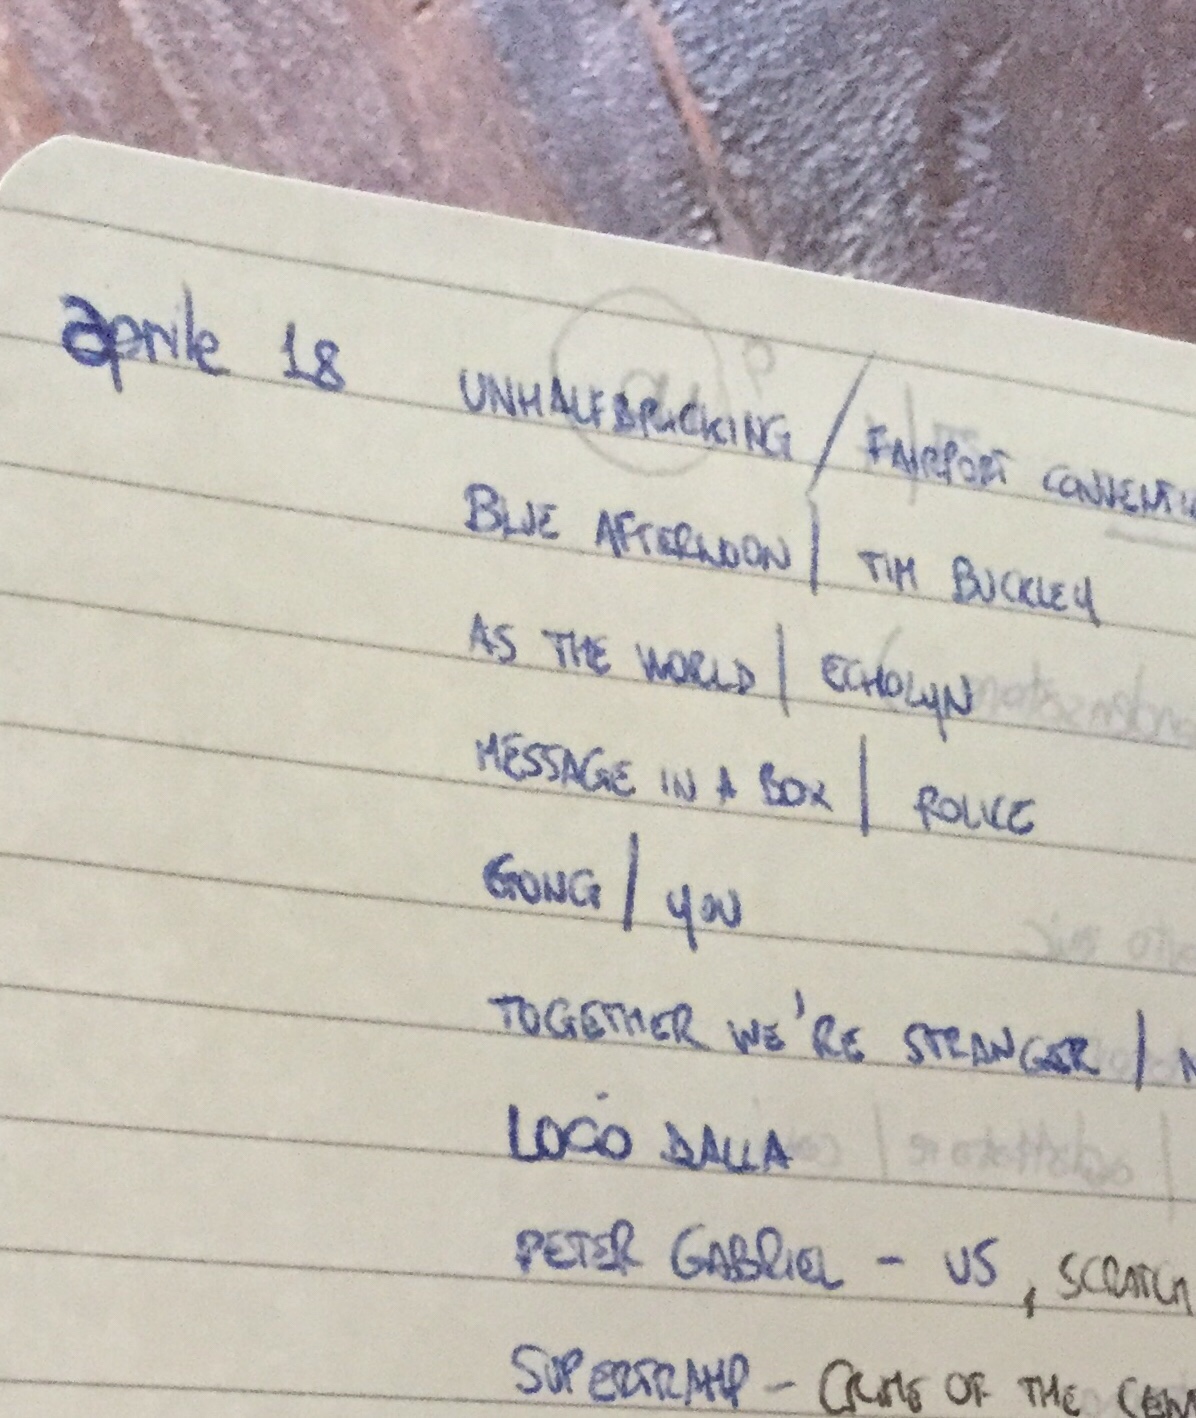 aprile 18 UNHALFBRICKING / FAIRPORT CONVENTI
BLUE AFTERNOON | TIM BUCKLEY
AS THE WORLD | ECHOLYN
MESSAGE IN A BOX | POLICE
GONG | YOU
TOGETHER WE'RE STRANGER |
LUCIO DALLA
PETER GABRIEL - US, SCRATCH
SUPERTRAMP - CRIME OF THE CEN